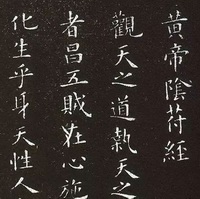 黃帝陰符經
觀天之道執天之
者昌五賊在心施
化生乎身天性人